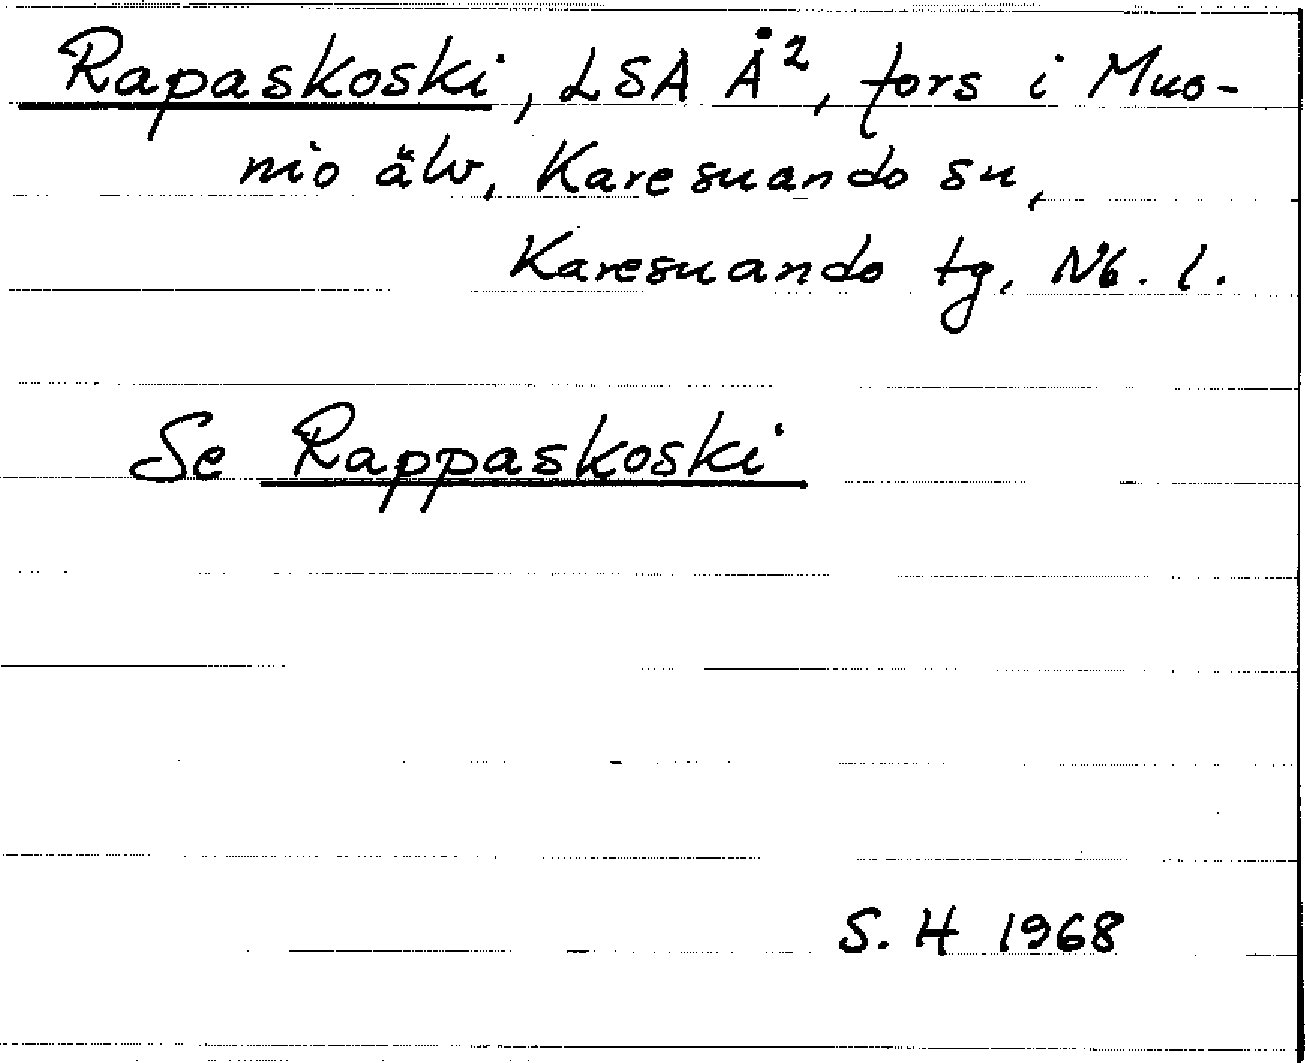 Rapaskoski, LSA Å², fors i Muo-
nio älv, Karesuando su,
Karesuando tg, Nb. l.
Se Rappaskoski
S. H 1968